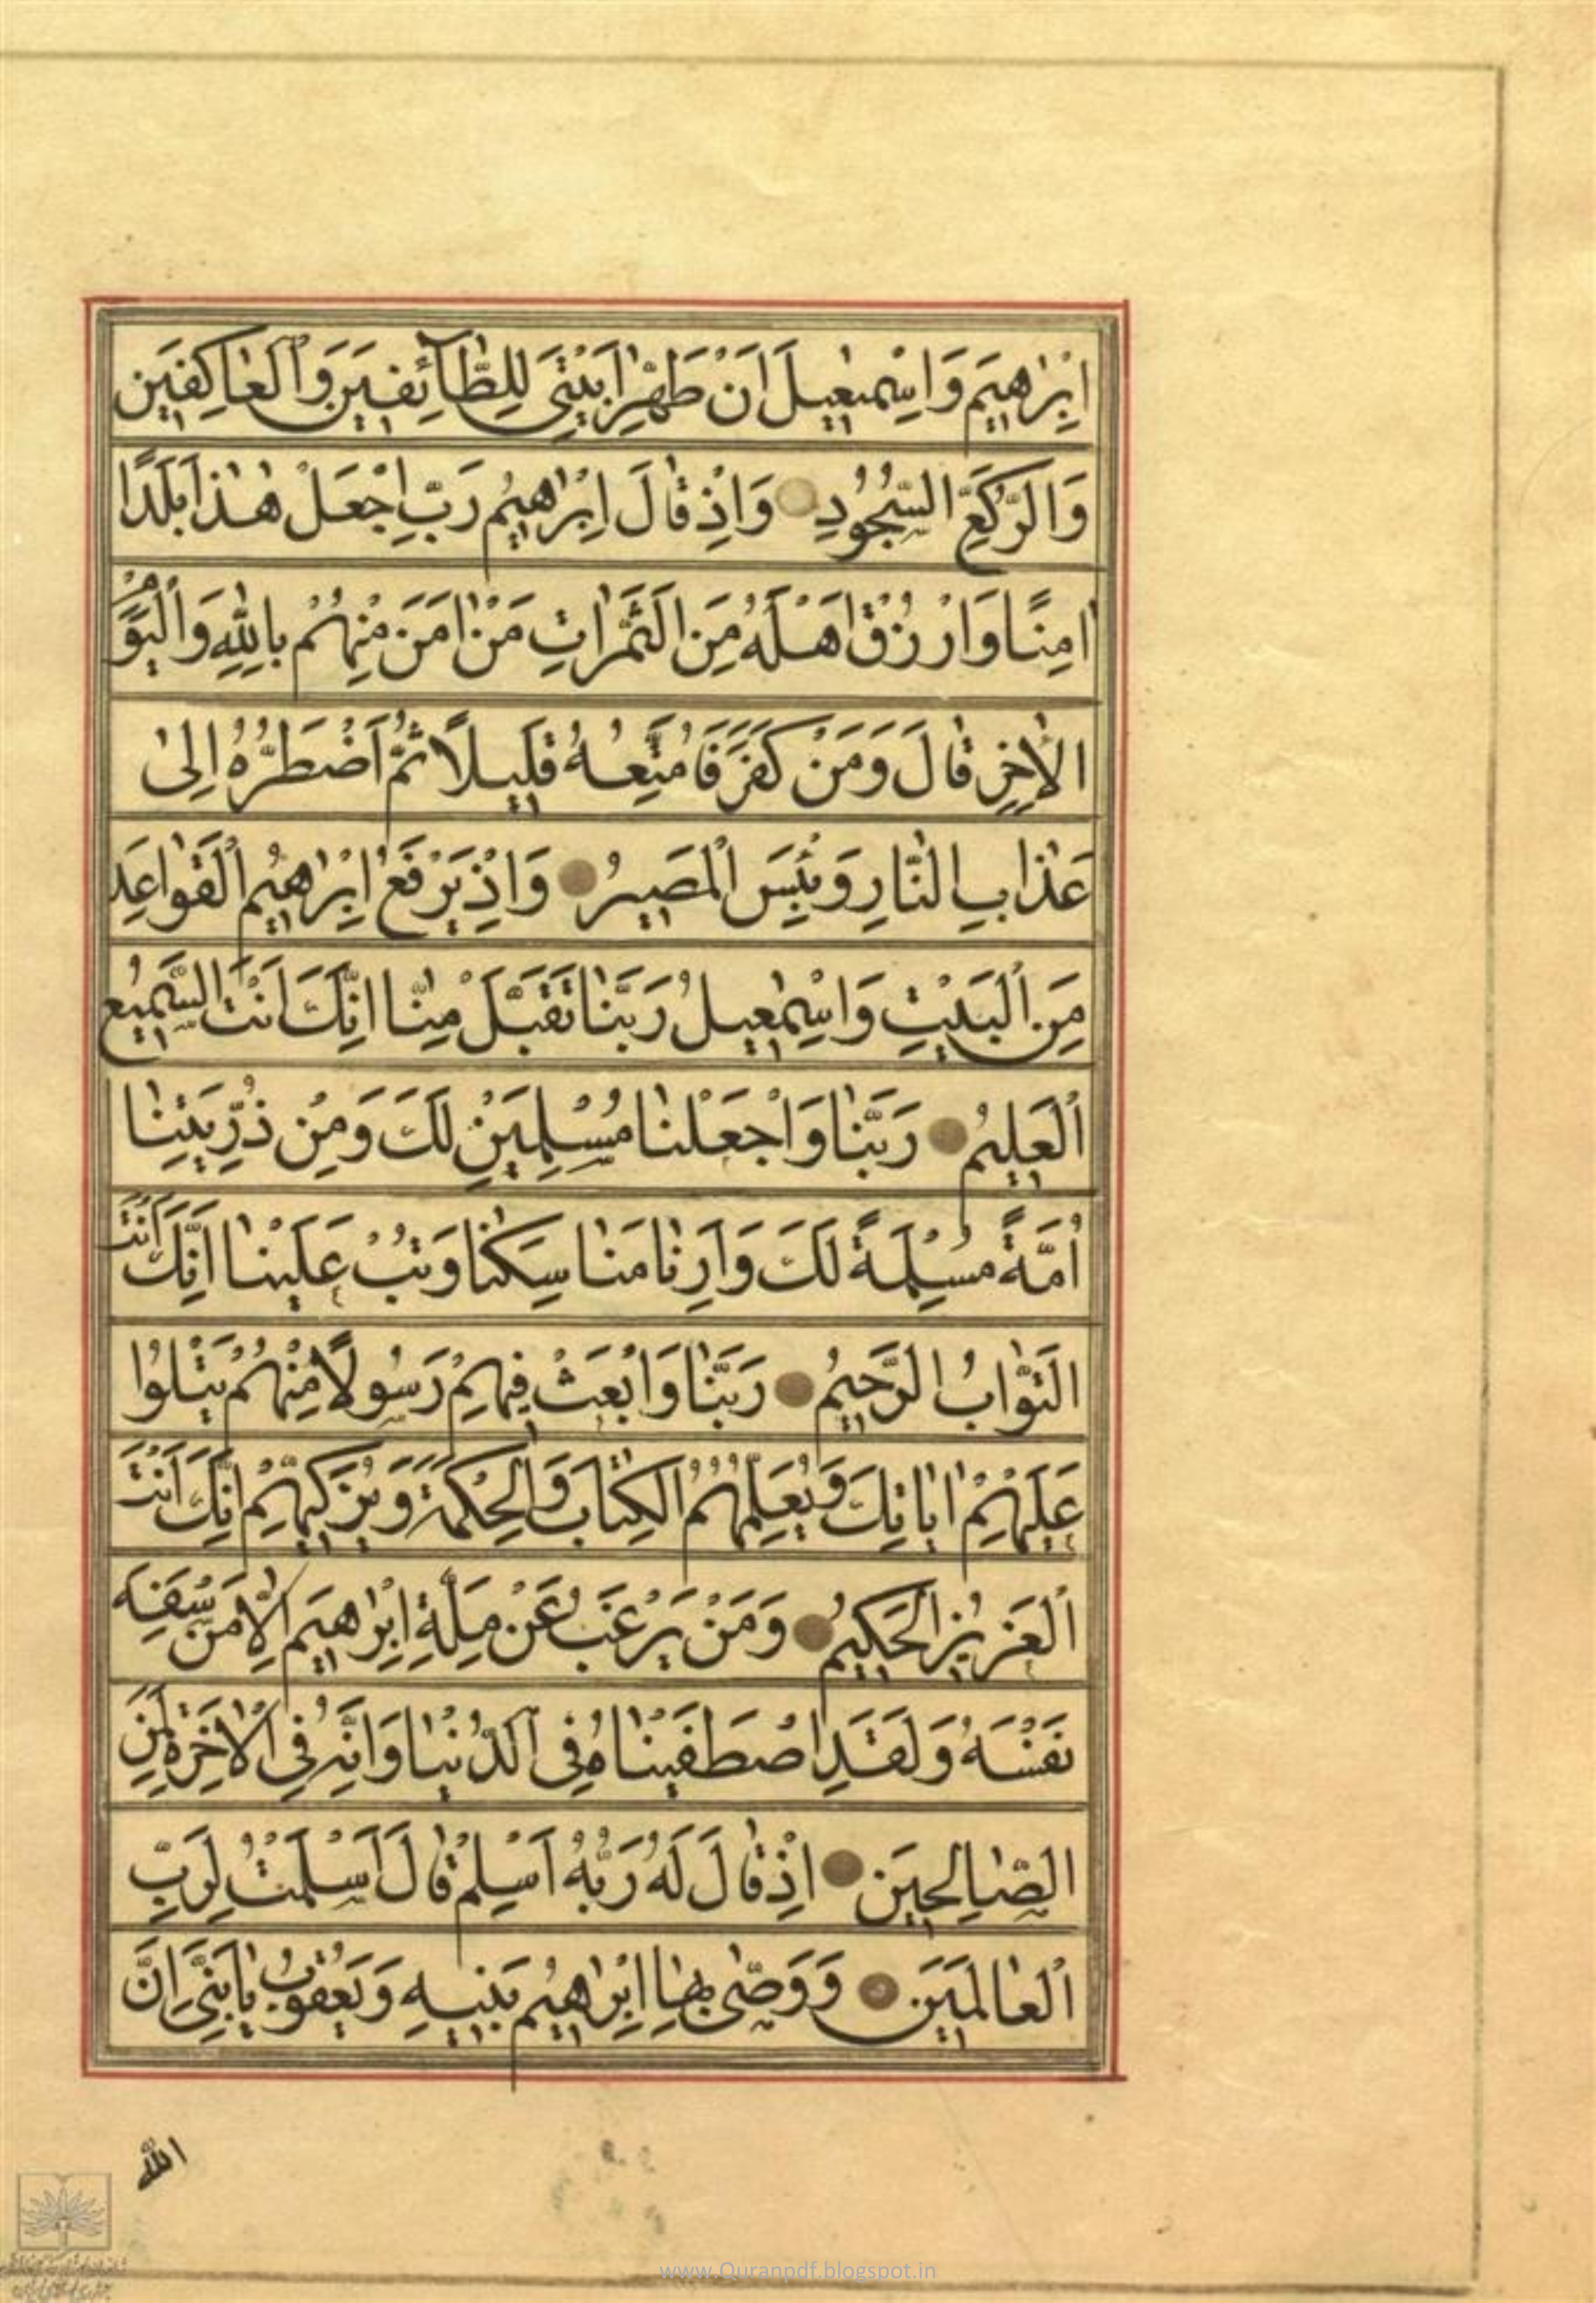 اِبْرٰاهِيمَ وَاِسْمٰعِيلَ اَنْ طَهِّرٰا بَيْتِيَ لِلطّٰآئِفِينَ وَالْعٰاكِفِينَ
وَالرُّكَّعِ السُّجُودِ وَاِذْ قٰالَ اِبْرٰاهِيمُ رَبِّ اجْعَلْ هٰذٰا بَلَدًا
اٰمِنًا وَارْزُقْ اَهْلَهُ مِنَ الثَّمَرٰاتِ مَنْ اٰمَنَ مِنْهُمْ بِاللّٰهِ وَالْيَوْمِ
الْاٰخِرِ قٰالَ وَمَنْ كَفَرَ فَاُمَتِّعُهُ قَلِيلًا ثُمَّ اَضْطَرُّهُ اِلىٰ
عَذٰابِ النّٰارِ وَبِئْسَ الْمَصِيرُ وَاِذْ يَرْفَعُ اِبْرٰاهِيمُ الْقَوٰاعِدَ
مِنَ الْبَيْتِ وَاِسْمٰعِيلُ رَبَّنٰا تَقَبَّلْ مِنّٰا اِنَّكَ اَنْتَ السَّمِيعُ
الْعَلِيمُ رَبَّنٰا وَاجْعَلْنٰا مُسْلِمَيْنِ لَكَ وَمِنْ ذُرِّيَّتِنٰا
اُمَّةً مُسْلِمَةً لَكَ وَاَرِنٰا مَنٰاسِكَنٰا وَتُبْ عَلَيْنٰا اِنَّكَ اَنْتَ
التَّوّٰابُ الرَّحِيمُ رَبَّنٰا وَابْعَثْ فِيهِمْ رَسُولًا مِنْهُمْ يَتْلُوا
عَلَيْهِمْ اٰيٰاتِكَ وَيُعَلِّمُهُمُ الْكِتٰابَ وَالْحِكْمَةَ وَيُزَكِّيهِمْ اِنَّكَ اَنْتَ
الْعَزِيزُ الْحَكِيمُ وَمَنْ يَرْغَبُ عَنْ مِلَّةِ اِبْرٰاهِيمَ اِلّٰا مَنْ سَفِهَ
نَفْسَهُ وَلَقَدِ اصْطَفَيْنٰاهُ فِي الدُّنْيٰا وَاِنَّهُ فِي الْاٰخِرَةِ لَمِنَ
الصّٰالِحِينَ اِذْ قٰالَ لَهُ رَبُّهُ اَسْلِمْ قٰالَ اَسْلَمْتُ لِرَبِّ
الْعٰالَمِينَ وَوَصّٰى بِهٰا اِبْرٰاهِيمُ بَنِيهِ وَيَعْقُوبُ يٰا بَنِيَّ اِنَّ
اللّٰه
www.Quranpdf.blogspot.in